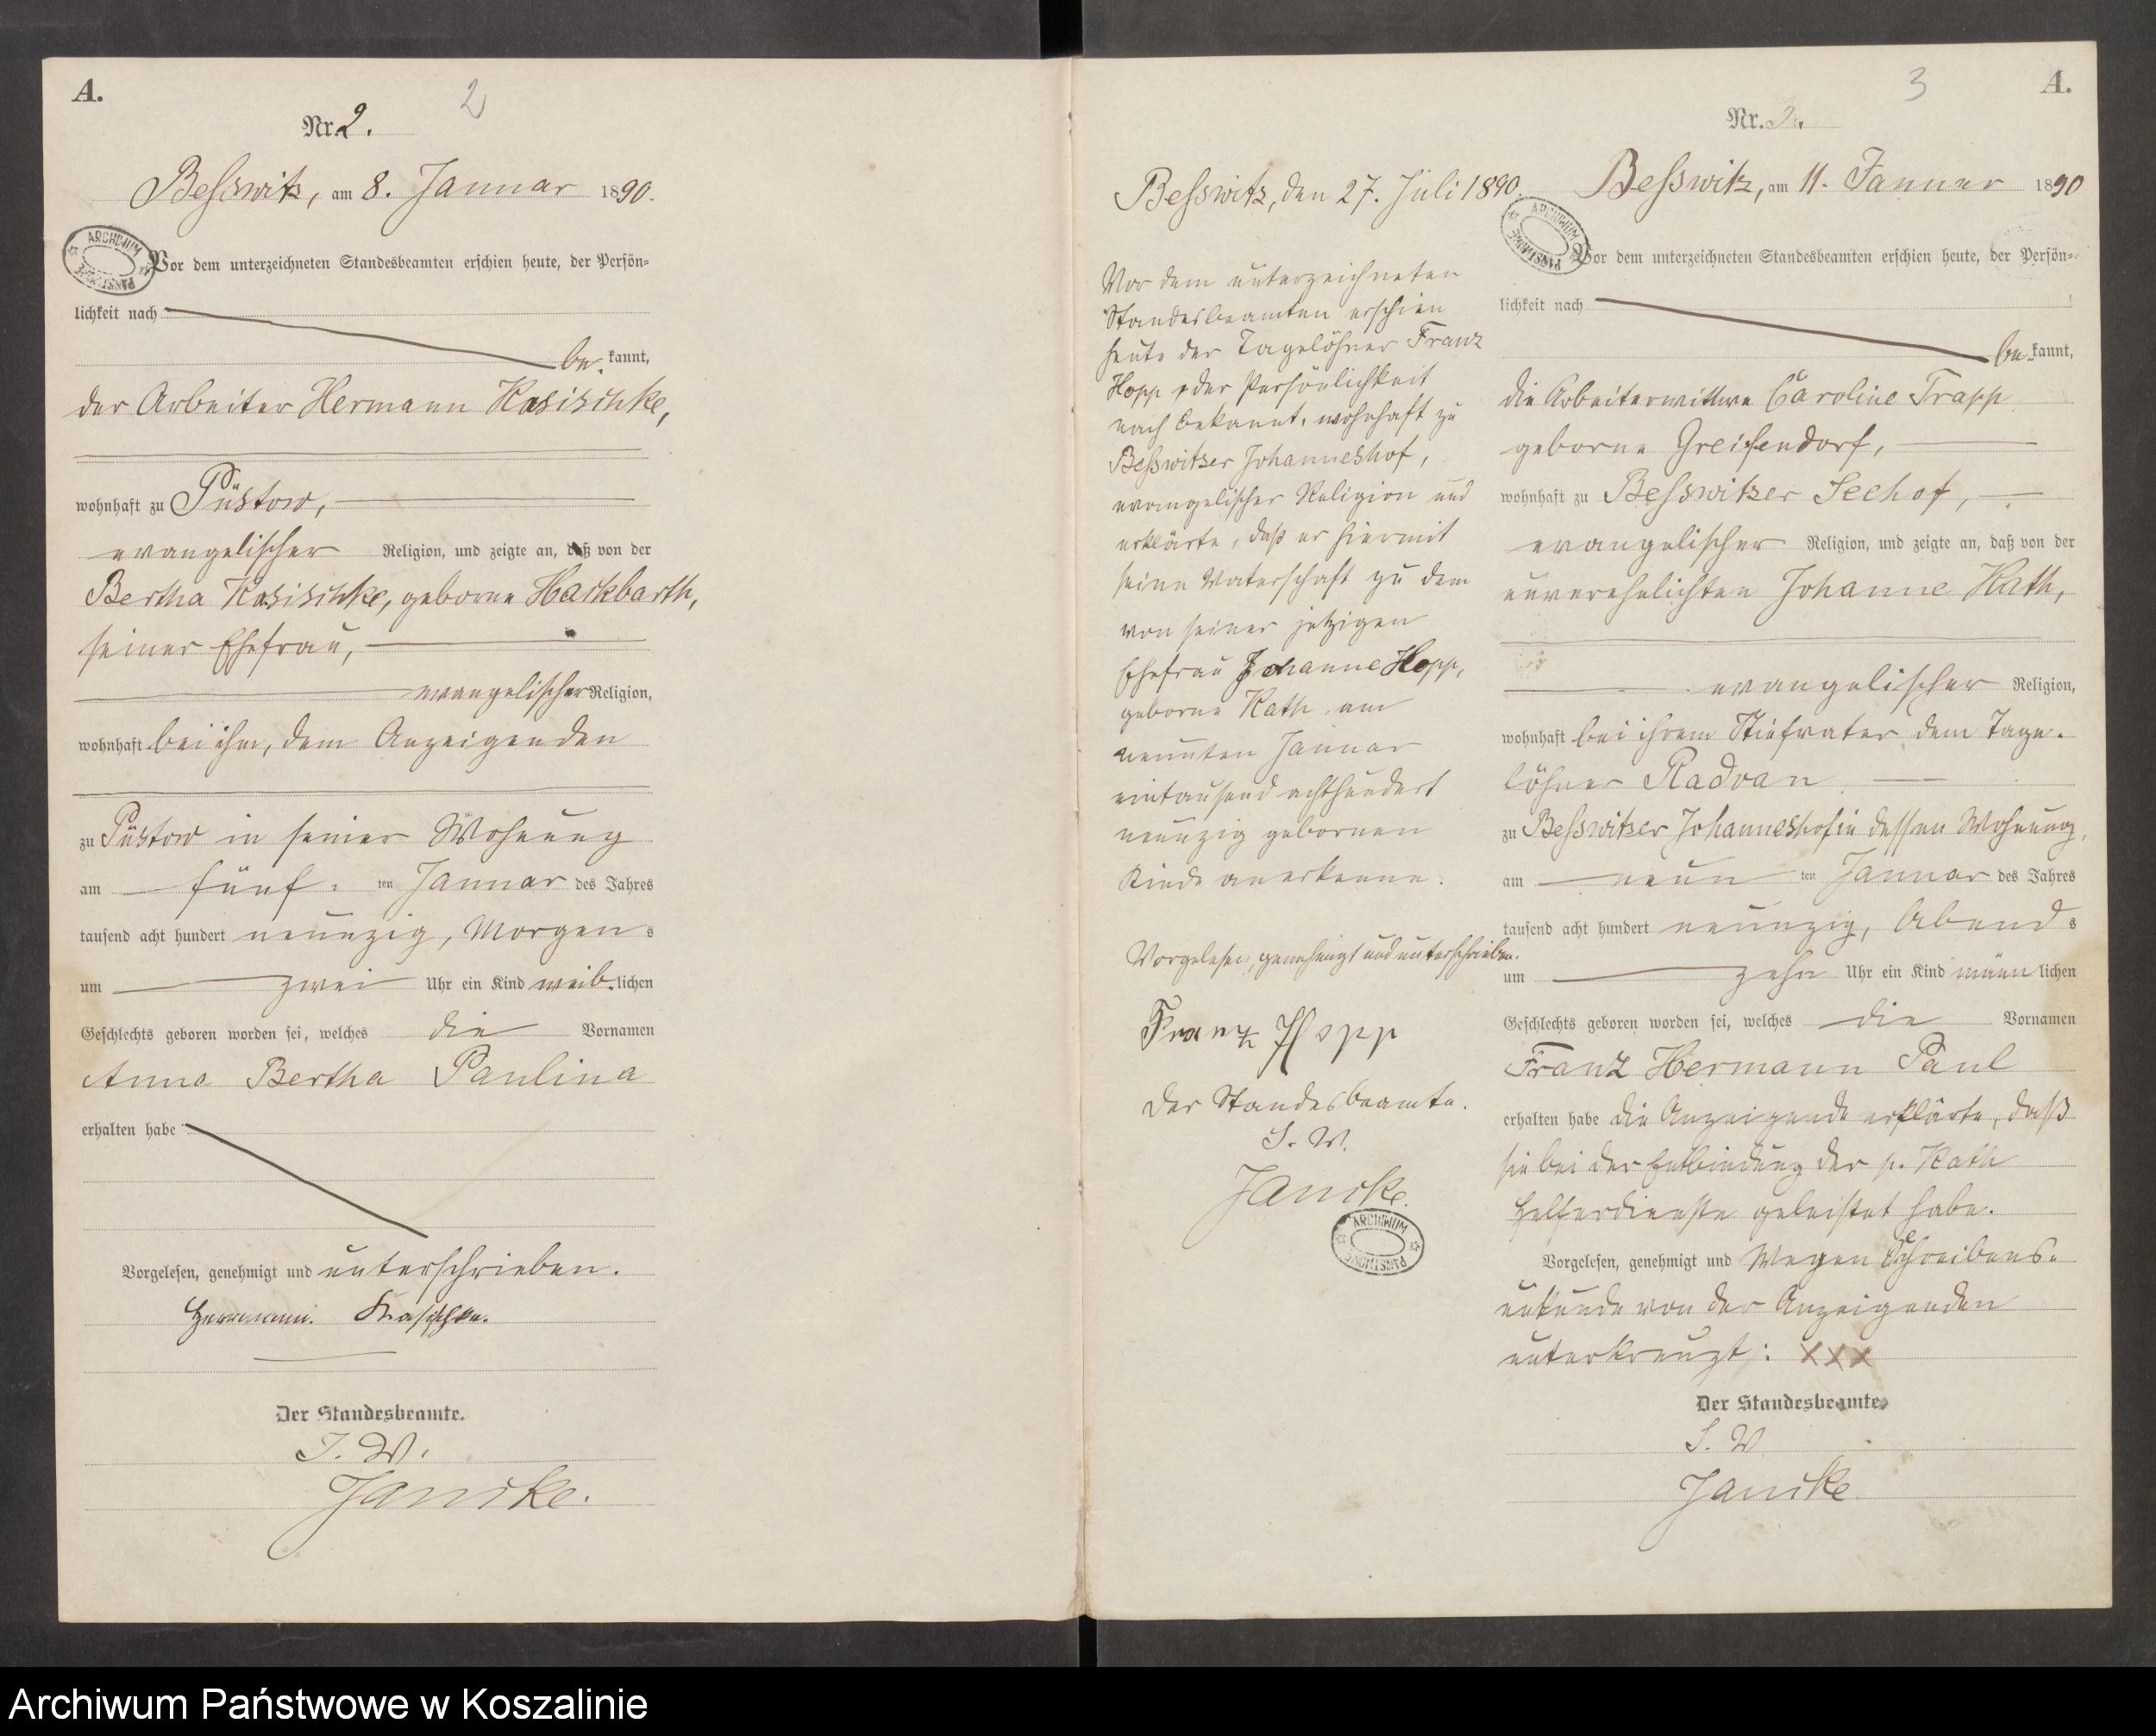 A.
2
Nr. 2.
Besswitz, am 8. Januar 1890.
ARCHIWUM PAŃSTWOWE
Vor dem unterzeichneten Standesbeamten erschien heute, der Persön-
lichkeit nach
be- kannt,
der Arbeiter Hermann Kasischke,
wohnhaft zu Püstow,
evangelischer Religion, und zeigte an, daß von der
Bertha Kasischke, geborne Hackbarth,
seiner Ehefrau,
evangelischer Religion,
wohnhaft bei ihm, dem Anzeigenden
zu Püstow in seiner Wohnung
am fünf- ten Januar des Jahres
tausend acht hundert neunzig, Morgens
um zwei Uhr ein Kind weib- lichen
Geschlechts geboren worden sei, welches die Vornamen
Anna Bertha Paulina
erhalten habe
Vorgelesen, genehmigt und unterschrieben.
Hermann. Kasischke.
Der Standesbeamte.
I. W.
Jancke.
Besswitz, den 27. Juli 1890.
Vor dem unterzeichneten
Standesbeamten erschien
heute der Tagelöhner Franz
Hopp, der Persönlichkeit
nach bekannt, wohnhaft zu
Besswitzer Johanneshof,
evangelischer Religion und
erklärte, daß er hiermit
seine Vaterschaft zu dem
von seiner jetzigen
Ehefrau Johanne Hopp,
geborne Kath am
neunten Januar
eintausend achthundert
neunzig gebornen
Kinde anerkenne.
Vorgelesen, genehmigt und unterschrieben.
Franz Hopp
Der Standesbeamte.
I. W.
Jancke.
ARCHIWUM PAŃSTWOWE
3
A.
Nr. 3.
Besswitz, am 11. Januar 1890
ARCHIWUM PAŃSTWOWE
Vor dem unterzeichneten Standesbeamten erschien heute, der Persön-
lichkeit nach
be- kannt,
die Arbeiterwittwe Caroline Trapp
geborne Greifendorf,
wohnhaft zu Besswitzer Seehof,
evangelischer Religion, und zeigte an, daß von der
unverehelichten Johanne Kath,
evangelischer Religion,
wohnhaft bei ihrem Stiefvater dem Tage-
löhner Radvan
zu Besswitzer Johanneshof in dessen Wohnung,
am neun ten Januar des Jahres
tausend acht hundert neunzig, Abends
um zehn Uhr ein Kind männ lichen
Geschlechts geboren worden sei, welches die Vornamen
Franz Hermann Paul
erhalten habe die Anzeigende erklärte, daß
sie bei der Entbindung der p. Kath
Helferdienste geleistet habe.
Vorgelesen, genehmigt und Wegen Schreibens-
unkunde von der Anzeigenden
unterkreuzt: XXX
Der Standesbeamte.
I. W
Jancke
Archiwum Państwowe w Koszalinie